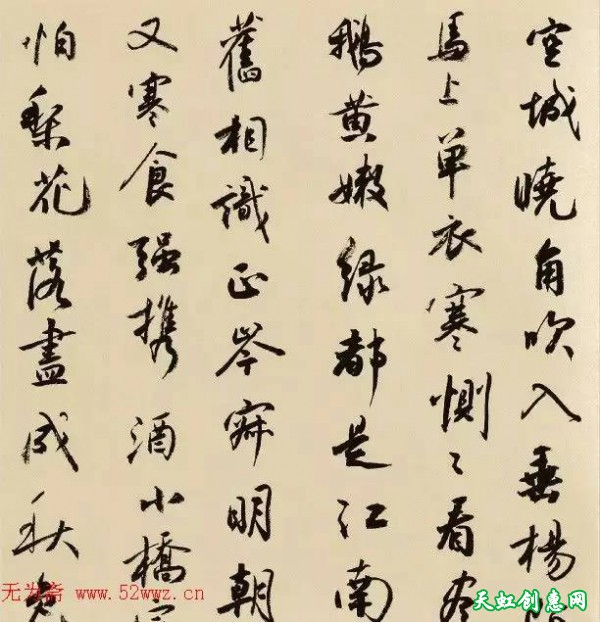 空城曉角吹入垂楊
馬上單衣寒惻〻看
鵝黄嫩緑都是江南
舊相識正岑寂明朝
又寒食强携酒小橋
怕梨花落盡成秋
无为斋 www.52wwz.cn
天虹创惠网